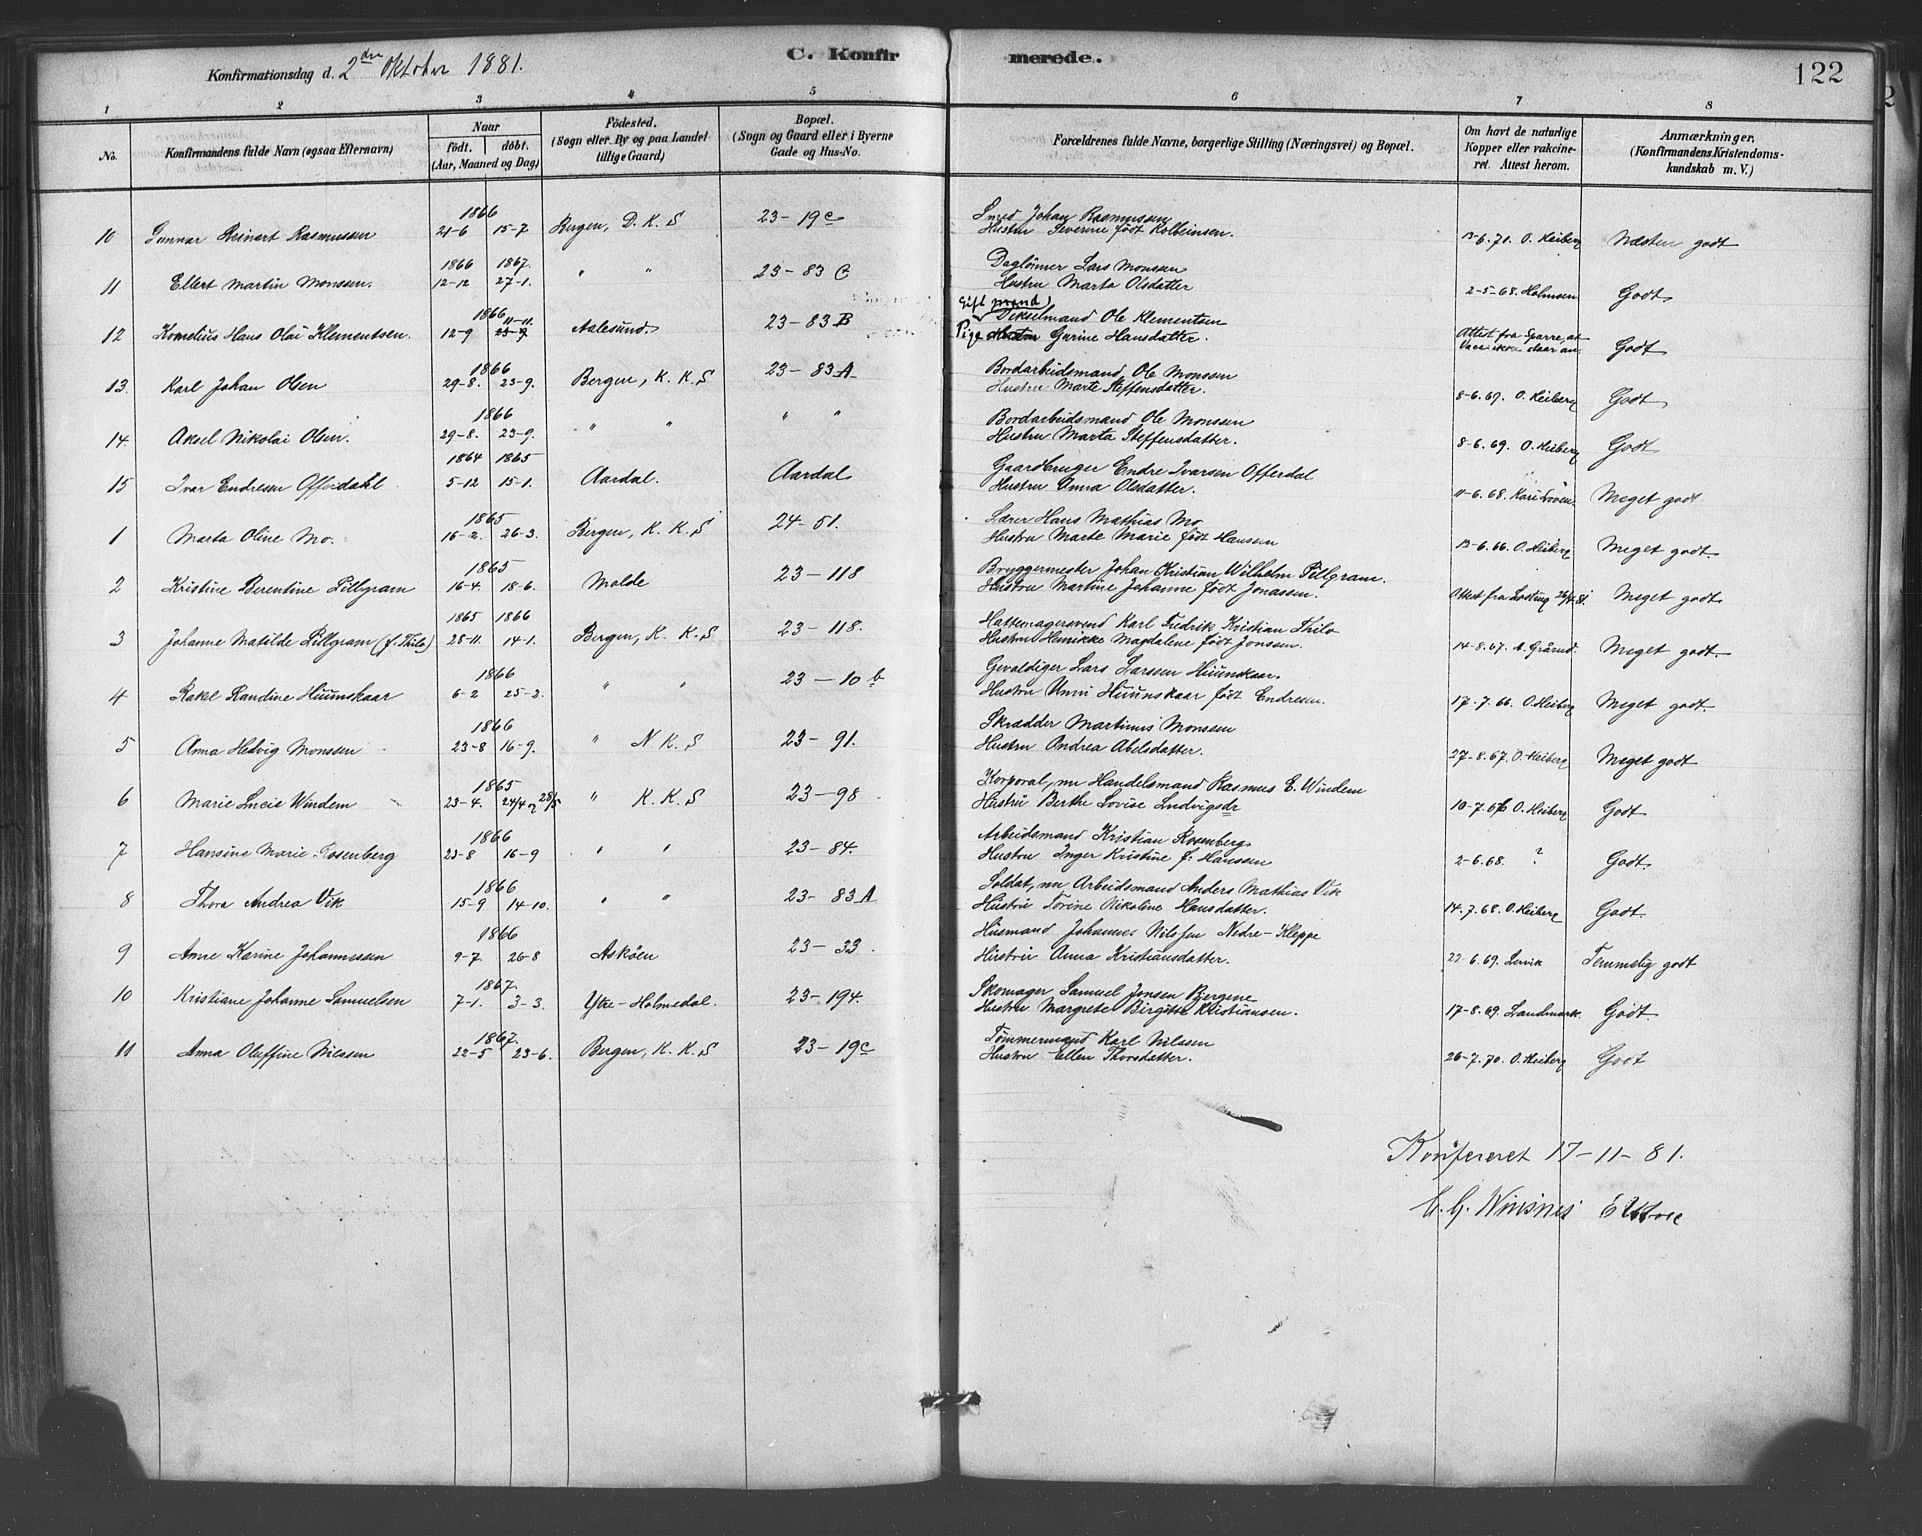 Konfirmationsdag d. 2den Oktober 1881.
C. Konfirmerede.
122
1 2 3 4 5 6 7 8
No.
Konfirmandens fulde Navn (ogsaa Efternavn)
Naar
født. døbt.
(Aar, Maaned og Dag)
Fødested.
(Sogn eller By og paa Landet tillige Gaard)
Bopæl.
(Sogn og Gaard eller i Byerne Gade og Hus-No.
Forældrenes fulde Navne, borgerlige Stilling (Næringsvei) og Bopæl.
Om havt de naturlige Kopper eller vakcineret. Attest herom.
Anmærkninger,
(Konfirmandens Kristendomskundskab m. V.)
1866 Smed Johan Rasmussen
10 Gunnar Reinert Rasmussen 21-6 15-7 Bergen, D. K. S 23-19c Hustru Severine født Kolbeinsen. 13-6.71. O. Heiberg Næsten godt
1866 1867. Dagløinner Lars Monssen
11 Ellert Martin Monssen. 12-12 27-1. " " 23-83 C Hustru Marta Olsdatter 2-5-68. Holmsen Godt
1866 11-11. Gift mand, Dikselmand Ole Klementsen
12 Kornelius Hans Olai Klementsen. 12-9 Aalesund. 23-83 B Pige Hustru Gurine Hansdatter. Attest fra Sparre, at Vac. ikke slaar an. Godt
1866 Bordarbeidsmand Ole Monssen
13. Karl Johan Olsen 29-8. 23-9. Bergen, K. K. S 23-83 A Hustru Marte Steffensdatter. 8-6.69. O. Heiberg Godt
1866 Bordarbeidsmand Ole Monssen
14. Aksel Nikolai Olsen. 29-8. 23-9. " " " " Hustru Marta Steffensdatter. 8-6.69. O. Heiberg Godt
1864 1865 Gaardbruger Endre Ivarsen Offerdal
15 Ivar Endresen Offerdahl. 5-12 15-1. Aardal. Aardal Hustru Anna Olsdatter. 11-6.68. Meget godt
1865 Lærer Hans Mathias Mo
1 Marta Oline Mo. 16-2. 26-3. Bergen, K. K. S 24-51. Hustru Marte Marie født Hansen 13-6.66. O. Heiberg Meget godt.
1865 Bryggermester Johan Kristian Wilhelm Pillgram.
2 Kristine Berentine Pillgram 16-4. 18-6. Molde 23-118 Hustru Martine Johanne født Jonassen. Attest fra Meget godt
1865 1866 Hattemagersvend Karl Fredrik Kristian Thilo
3 Johanne Matilde Pillgram (f. Thilo) 28-11. 14-1. Bergen, K. K. S 23-118. Hustru Henrikke Magdalene født Jonssen. 14-8.67. Meget godt.
1866 Gevaldiger Lars Larssen Huunskaar.
4 Rakel Randine Huunskaar 6-2 25-2. " " 23-10 b Hustru Unni Huunskaar født Endresen. 17-7.66. O. Heiberg Meget godt.
1866 Skrædder Martinus Monssen
5 Anna Hedvig Monssen 23-8 16-9. " N. K. S 23-91. Hustru Andrea Abelsdatter. 27-8.67. O. Heiberg Meget godt
1865 Korporal, nu Handelsmand Rasmus E. Windem
6 Marie Lucie Windem 23-4. 24/4 og 28/5 " K. K. S 23-98 Hustru Berthe Lovise Ludvigsdr 10-7.66 O. Heiberg Godt
1866 Arbeidsmand Kristian Rosenberg
7 Hansine Marie Rosenberg 23-8 16-9 " " 23-84. Hustru Inger Kristine f. Hanssen 2-6.68. ? Godt.
1866 Soldat, nu Arbeidsmand Anders Mathias Vik
8 Thora Andrea Vik 15-9 14-10. " " 23-83 A Hustru Torine Nikoline Hansdatter. 14.7.68. O. Heiberg Godt
1866 Husmand Johannes Nilssen Nedre-Kleppe
9 Anne Karine Johannessen 9-7 26-8 Askøen 23-33. Hustru Anna Kristiansdatter. 22-6.69. Lervik Temmelig godt
1867. Skomager Samuel Jonsen Bergene
10 Kristiane Johanne Samuelsen 7-1. 3-3. Ytre-Holmedal. 23-194. Hustru Margrete Birgitte Kristiansen. 17-8.69 Landmark. Godt
1867. Tømmermand Karl Nilssen
11 Anna Oluffine Nilssen 22-5 23-6. Bergen, K. K. S 23-19c Hustru Ellen Thorsdatter. 26-7.70. O. Heiberg Godt
Konfereret 17-11-81.
Winsnes